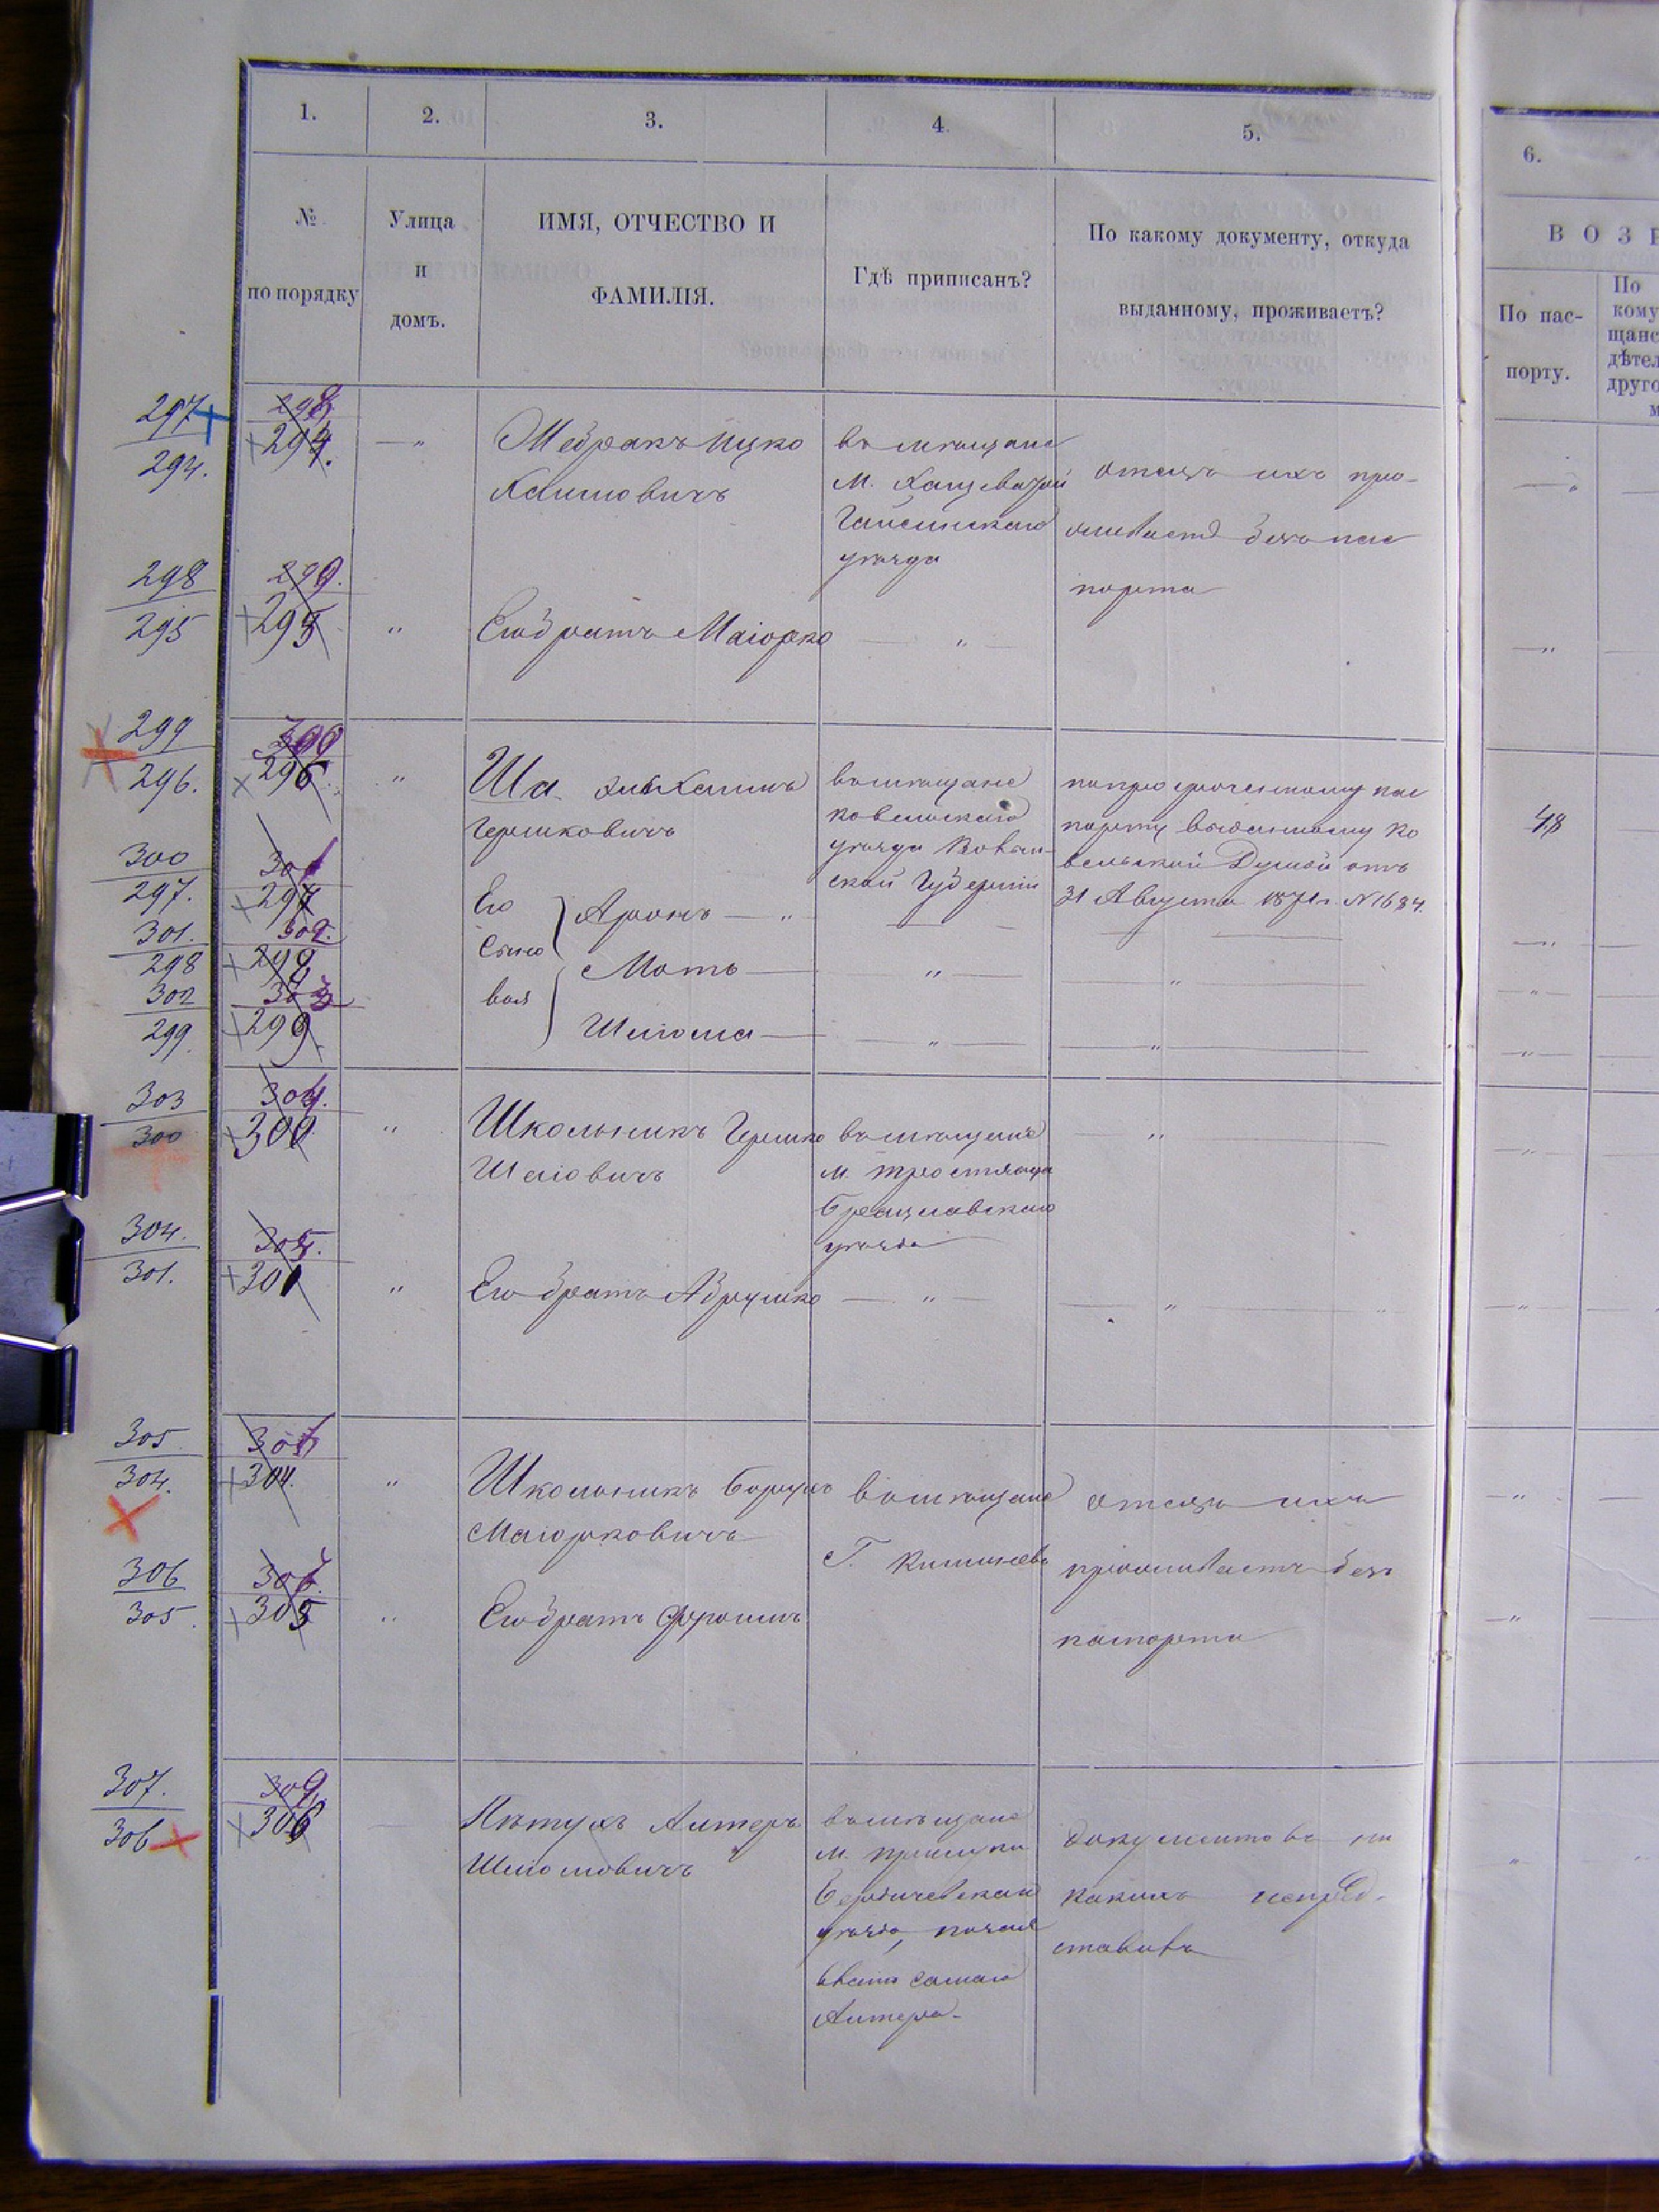 1. 2. 3. 4. 5. 6.
№ по порядку
Улица и домъ.
ИМЯ, ОТЧЕСТВО И ФАМИЛІЯ.
Гдѣ приписанъ?
По какому документу, откуда выданному, проживаетъ?
В О З
По пас-
порту.
По
кому
щанс
дѣтел
друго
м
297
294.
298
294.
— „
Медракъ Ицко
Хаимовичъ
въ мѣщане
М. Хащеватой
Гайсинскаго
уѣзда
отецъ ихъ про-
живаетъ безъ пас
порта
298
295
299.
295
„
Его братъ Маіорко
— „ —
299
296.
300
296
„
Ша
Хаимъ
Гершковичъ
въ мѣщане
Ковельскаго
уѣзда Волын-
ской Губерніи
по просроченному пас
порту выданному Ко
вельской Думой отъ
31 Августа 1871г. №1684.
48
300
297.
301
297
Его
Сыно
вья
Аронъ — „
301.
298
302.
298
Мотъ —
„ —
„
302
299
303
299.
Шлiома —
— „ —
— „ —
303
300
304.
300
„
Школьникъ Гершко
Шаiовичъ
въ мѣщане
М. Тростянца
Брацлавскаго
уѣзда
— „ —
304.
301.
305.
301
„
Его братъ Абрумко
— „ —
— „
305
304.
304.
„
Школьникъ Борухъ
Маiорковичъ
въ мѣщане
Г. Кишинева
отецъ ихъ
проживаетъ безъ
паспорта
306
305.
305
„
Его братъ Фроимъ
307.
306
309.
306
Пѣтухъ Алтеръ
Шлiомовичъ
въ мѣщане
М. Прилуки
Бердичевскаго
уѣзда,
самаго
Алтера.
документовъ ни
какихъ непред-
ставивъ